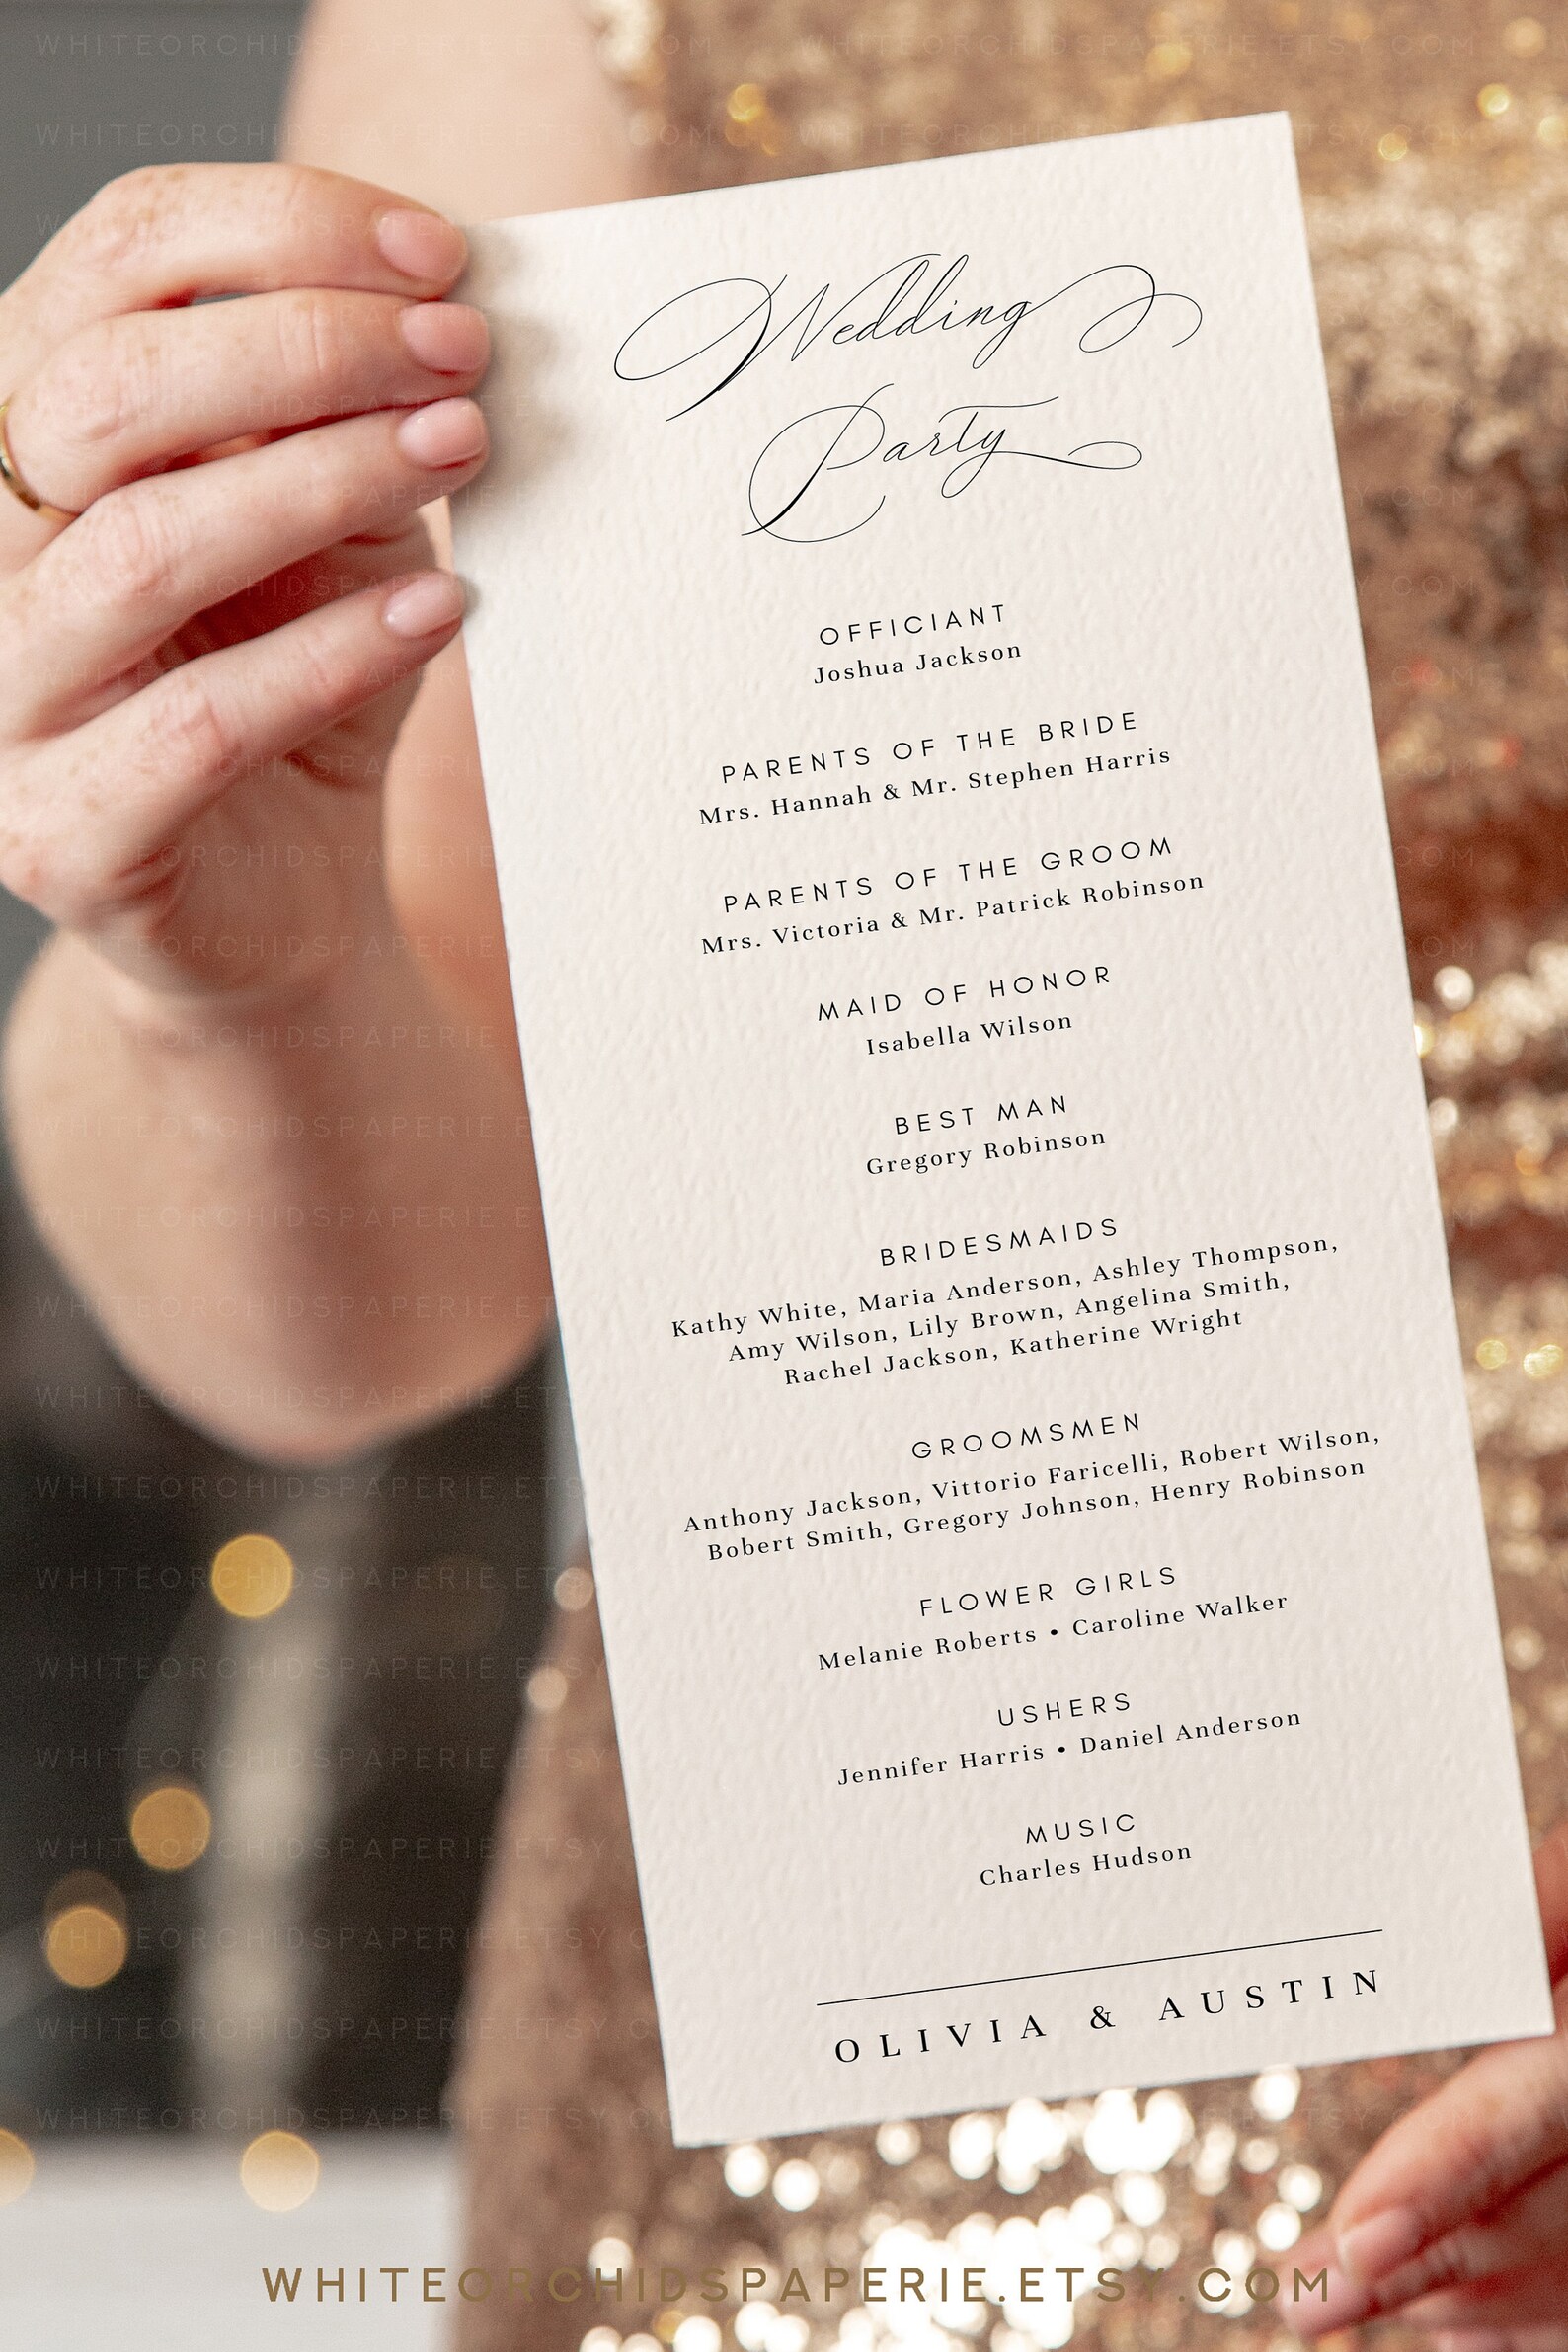 Wedding
Party
OFFICIANT
Joshua Jackson
PARENTS OF THE BRIDE
Mrs. Hannah & Mr. Stephen Harris
PARENTS OF THE GROOM
Mrs. Victoria & Mr. Patrick Robinson
MAID OF HONOR
Isabella Wilson
BEST MAN
Gregory Robinson
BRIDESMAIDS
Kathy White, Maria Anderson, Ashley Thompson,
Amy Wilson, Lily Brown, Angelina Smith,
Rachel Jackson, Katherine Wright
GROOMSMEN
Anthony Jackson, Vittorio Faricelli, Robert Wilson,
Bobert Smith, Gregory Johnson, Henry Robinson
FLOWER GIRLS
Melanie Roberts • Caroline Walker
USHERS
Jennifer Harris • Daniel Anderson
MUSIC
Charles Hudson
OLIVIA & AUSTIN
WHITEORCHIDSPAPERIE.ETSY.COM